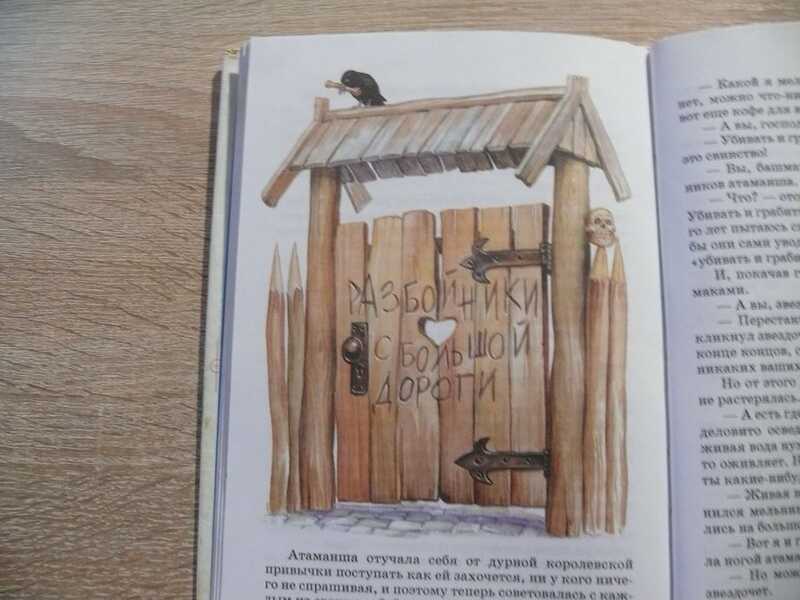 РАЗБОЙНИКИ
С БОЛЬШОЙ
ДОРОГИ
Атаманша отучала себя от дурной королевской
привычки поступать как ей захочется, ни у кого ниче-
го не спрашивая, и поэтому теперь советовалась с каж-
— Какой я мел
нет, можно что-ни
вот еще кофе для в
— А вы, госпо
— Убивать и гр
это свинство!
— Вы, башма
ников атаманша.
— Что? — ото
Убивать и грабит
го лет пытаюсь св
бы они сами увод
«убивать и граби
И, покачав г
маками.
— А вы, звез
— Перестан
кликнул звездоч
конце концов, с
никаких ваших
Но от этого
не растерялась.
— А есть гд
деловито освед
живая вода ну
то оживляет. Н
ты какие-нибу
— Живая в
нился мельни
лись на больш
— Вот я и г
ла ногой атама
— Но мож
звездочет.